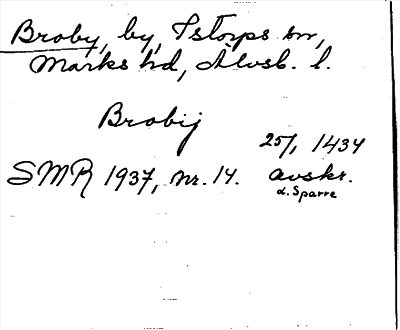 Broby, by, Istorps sn,
Marks hd, Älvsb. l.
Brobij
25/1 1434
SMR 1937, nr. 14. avskr.
d. Sparre